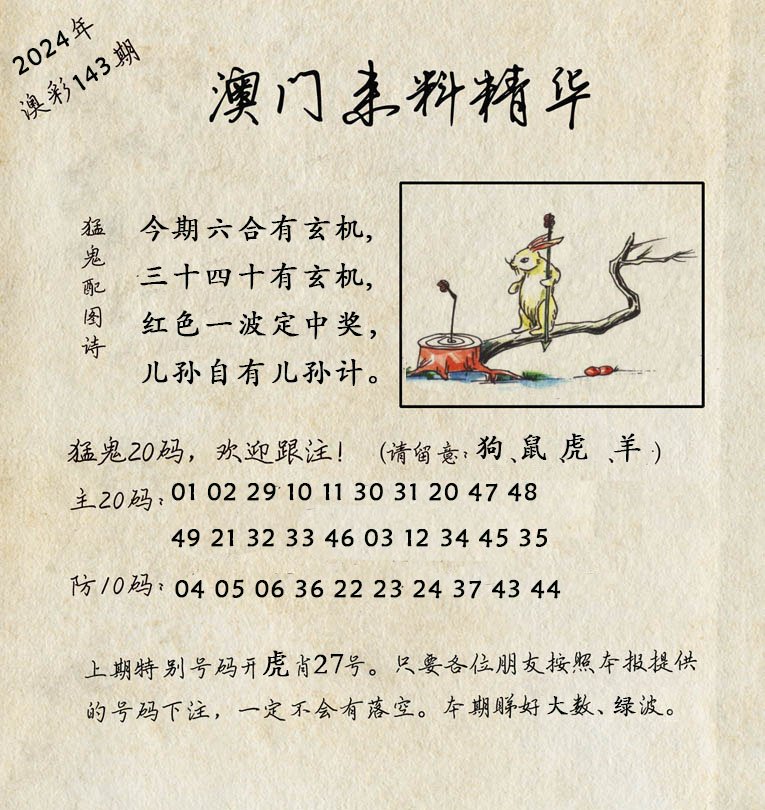 2024年
澳彩143期
澳门来料精华
猛鬼配图诗
今期六合有玄机，
三十四十有玄机，
红色一波定中奖，
儿孙自有儿孙计。
猛鬼20码，欢迎跟注！（请留意：狗、鼠、虎、羊）
主20码：01 02 29 10 11 30 31 20 47 48
49 21 32 33 46 03 12 34 45 35
防10码：04 05 06 36 22 23 24 37 43 44
上期特别号码开虎肖27号。只要各位朋友按照本报提供
的号码下注，一定不会有落空。本期睇好大数、绿波。